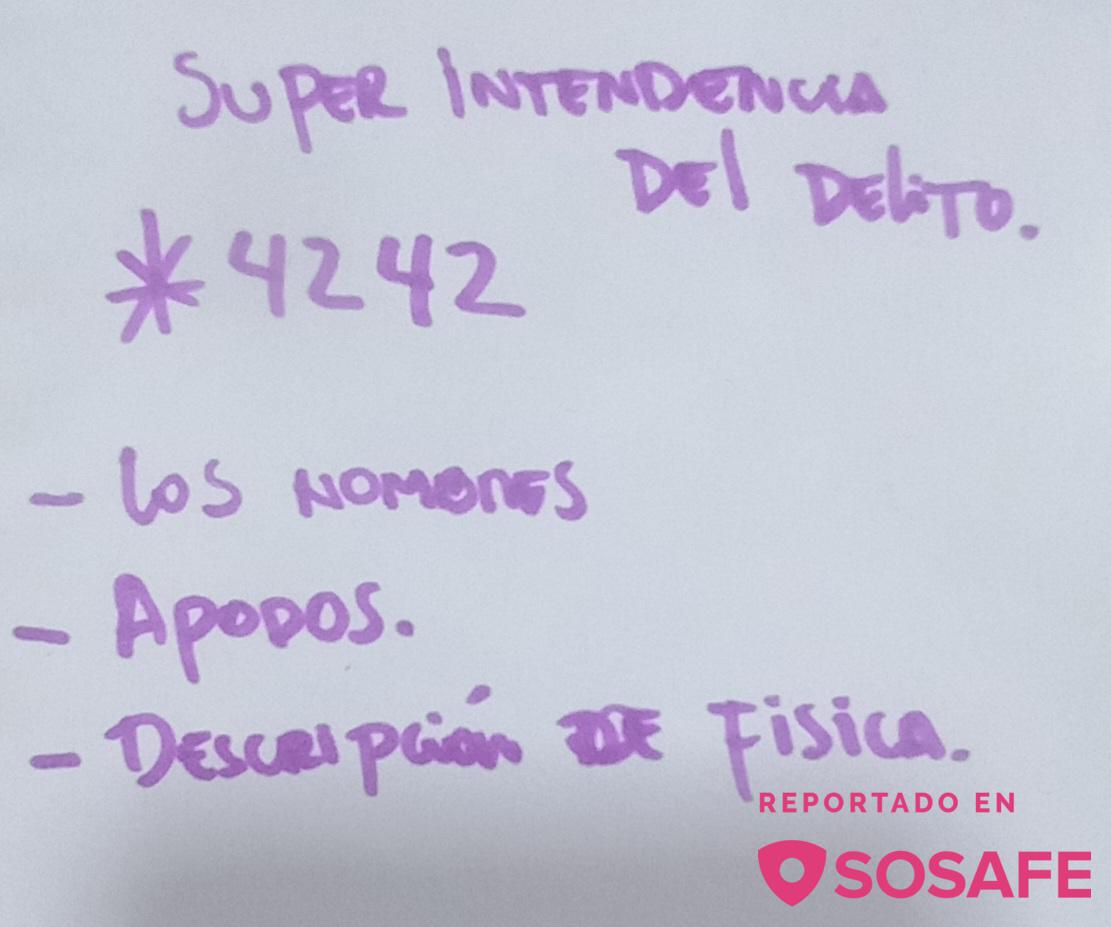 SUPER INTENDENCIA
DEL DELITO.
*4242
- LOS NOMBRES
- APODOS.
- DESCRIPCIÓN DE FISICA.
REPORTADO EN
SOSAFE